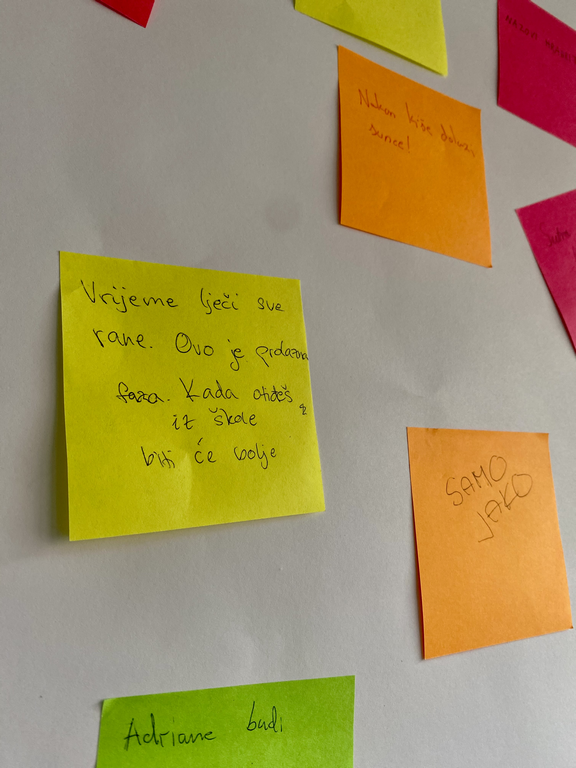 Nakon kiše dolazi
sunce!
Vrijeme lječi sve
rane. Ovo je prolazna
faza. Kada otiđeš
iz škole
biti će bolje
SAMO
JAKO
Adriane budi